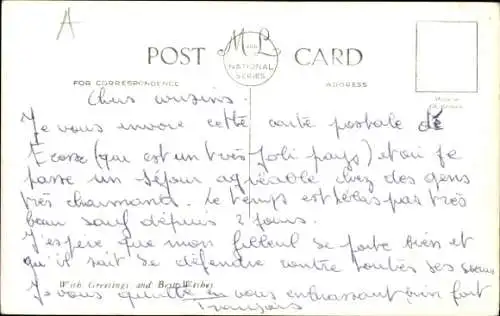 A
POST M L CARD
THE
NATIONAL
SERIES
FOR CORRESPONDENCE ADDRESS
Made in
Gt. Britain
Chers cousins.
Je vous envoie cette carte postale de
Ecosse (que est un très joli pays) et où je
passe un séjour agréable chez des gens
très charmants. Le temps est hélas pas très
beau sauf dépuis 2 jours.
J'espère que mon filleul se porte bien et
qu'il sait se défendre contre toutes ses soeurs
With Greetings and Best Wishes
Je vous quitte en vous embrassant bien fort